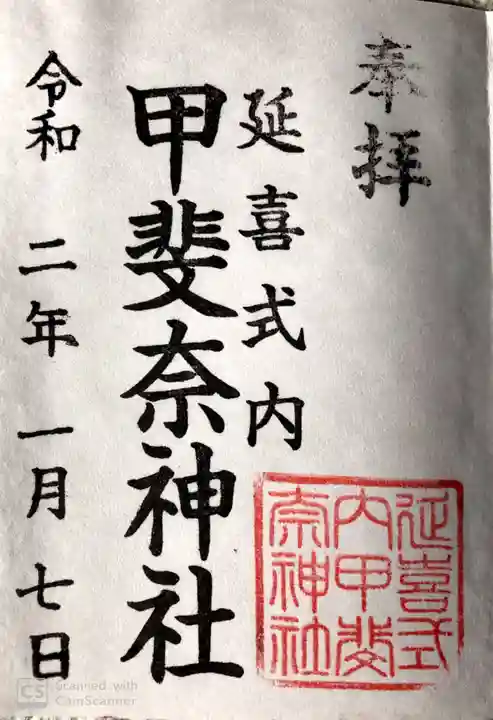 奉拝
延喜式内
甲斐奈神社
令和 二年 一月 七日
延喜式
内甲斐
奈神社
CS Scanned with
CamScanner